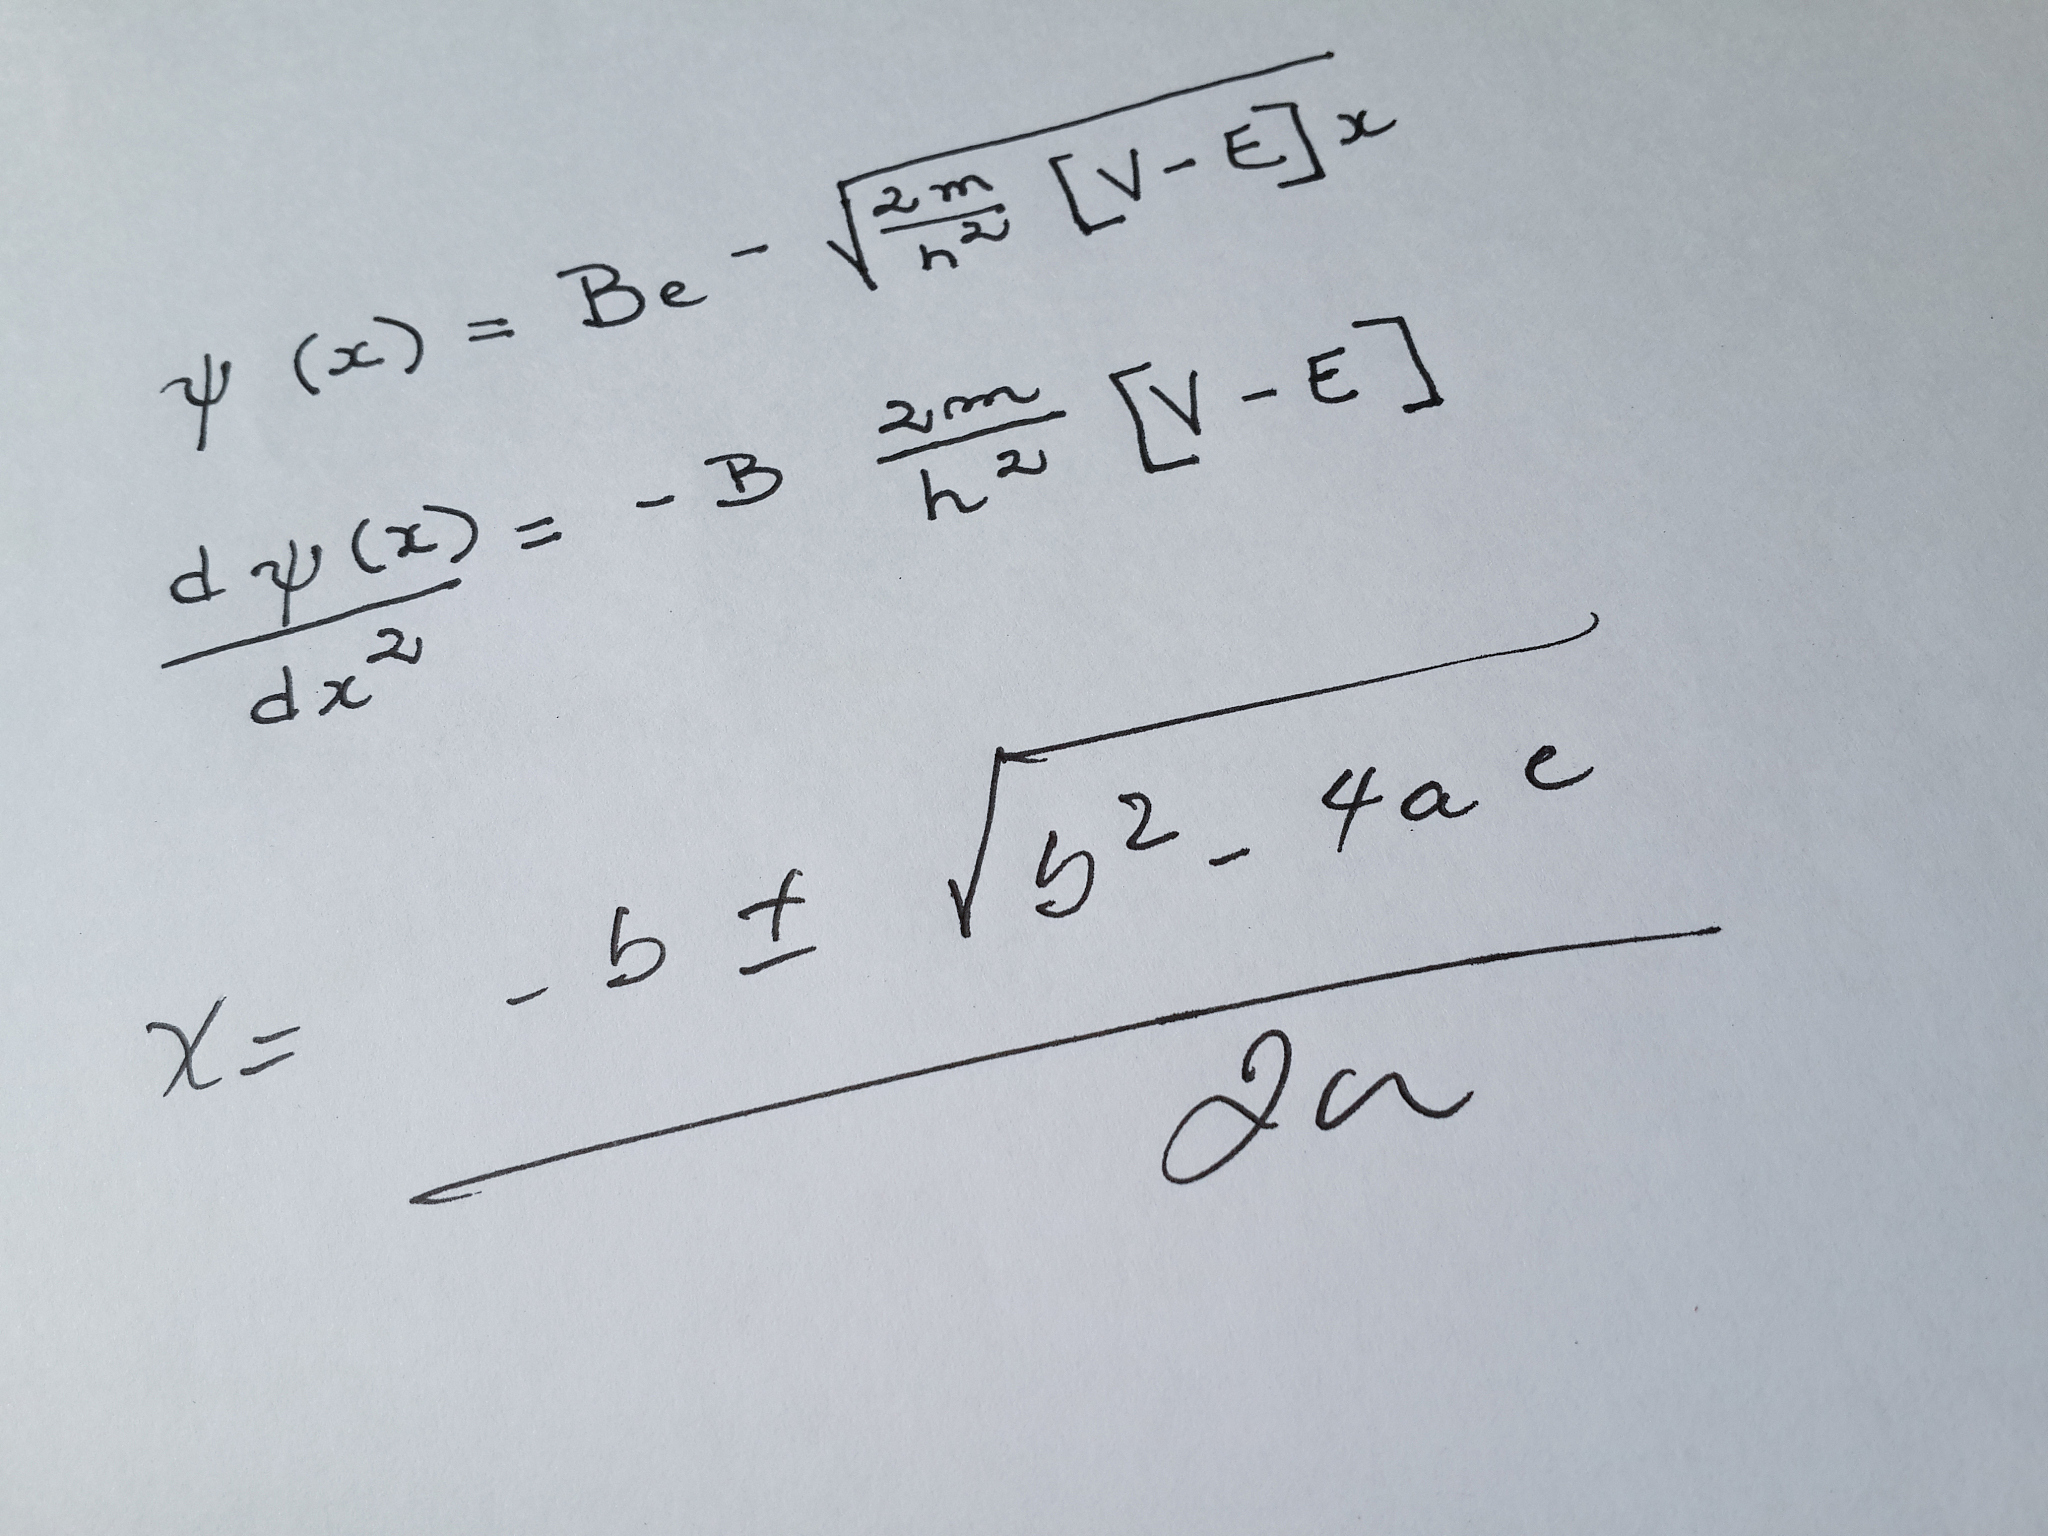 ψ(x) = Be^-√(2m/h² [V-E]) x
dψ(x)/dx² = -B 2m/h² [V-E]
x = (-b ± √(b²-4ac))/2a